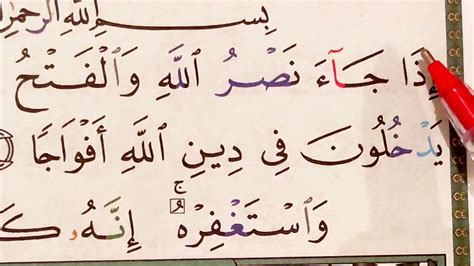 بِسْمِ اللَّهِ الرَّحْمَٰنِ
إِذَا جَآءَ نَصْرُ اللَّهِ وَالْفَتْحُ
يَدْخُلُونَ فِي دِينِ اللَّهِ أَفْوَاجًا
وَاسْتَغْفِرْهُ ۚ إِنَّهُ